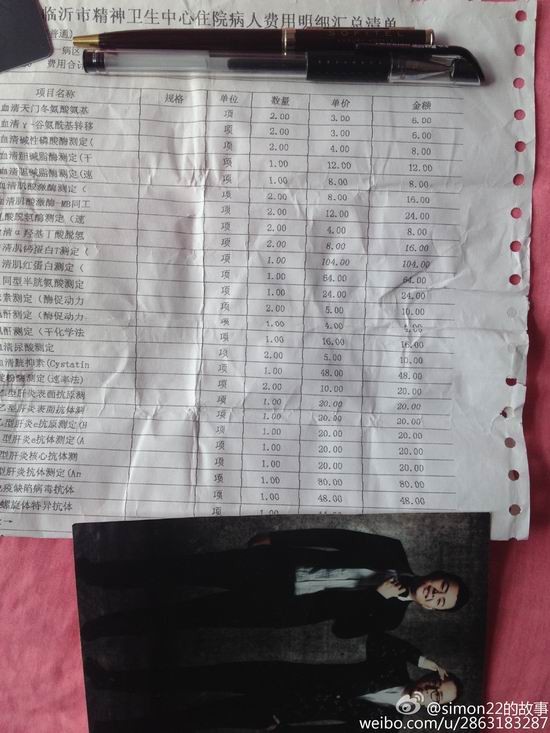 临沂市精神卫生中心住院病人费用明细汇总清单
普通)
病区
费用合计
SOFITEL
项目名称 规格 单位 数量 单价 金额
血清天门冬氨酸氨基 项 2.00 3.00 6.00
血清γ-谷氨酰基转移 项 2.00 3.00 6.00
血清碱性磷酸酶测定( 项 2.00 4.00 8.00
血清胆碱脂酶测定(干 项 1.00 12.00 12.00
血清胆碱脂酶测定(速 项 1.00 8.00 8.00
血清肌酸激酶测定( 项 2.00 8.00 16.00
血清肌酸激酶-MB同工 项 2.00 12.00 24.00
乳酸脱氢酶测定(速 项 2.00 4.00 8.00
血清α羟基丁酸脱氢 项 2.00 8.00 16.00
清肌钙蛋白T测定( 项 1.00 104.00 104.00
清肌红蛋白测定( 项 1.00 64.00 64.00
同型半胱氨酸测定 项 1.00 24.00 24.00
素测定(酶促动力 项 2.00 5.00 10.00
酐测定(酶促动力 项 1.00 4.00 4.00
酐测定(干化学法 项 1.00 16.00 16.00
清尿酸测定 项 2.00 5.00 10.00
清胱抑素(Cystatin 项 1.00 48.00 48.00
淀粉酶测定(速率法) 项 2.00 10.00 20.00
乙型肝炎表面抗原测 项 1.00 20.00 20.00
乙型肝炎表面抗体测 项 1.00 20.00 20.00
乙型肝炎e抗原测定(H 项 1.00 20.00 20.00
型肝炎e抗体测定(A 项 1.00 20.00 20.00
型肝炎核心抗体测 项 1.00 20.00 20.00
型肝炎抗体测定(An 项 1.00 80.00 80.00
免疫缺陷病毒抗体 项 1.00 48.00 48.00
螺旋体特异抗体 项 1.00
@simon22的故事
weibo.com/u/2863183287